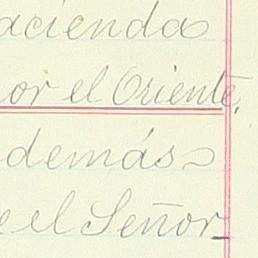 acienda
or el Oriente,
demás
e el Señor